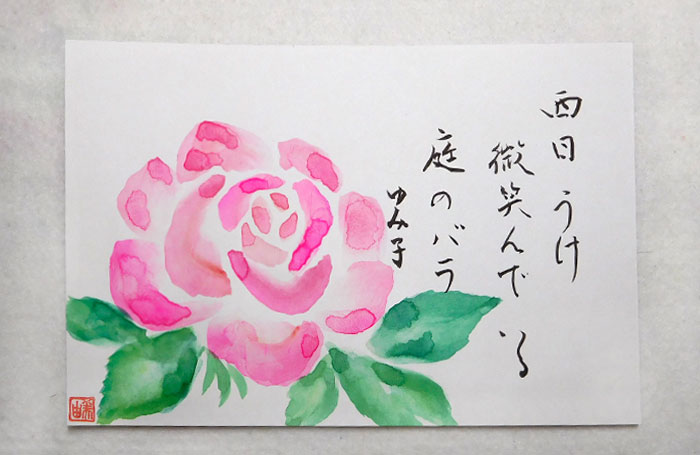 西日うけ
微笑んでいる
庭のバラ
ゆみ子